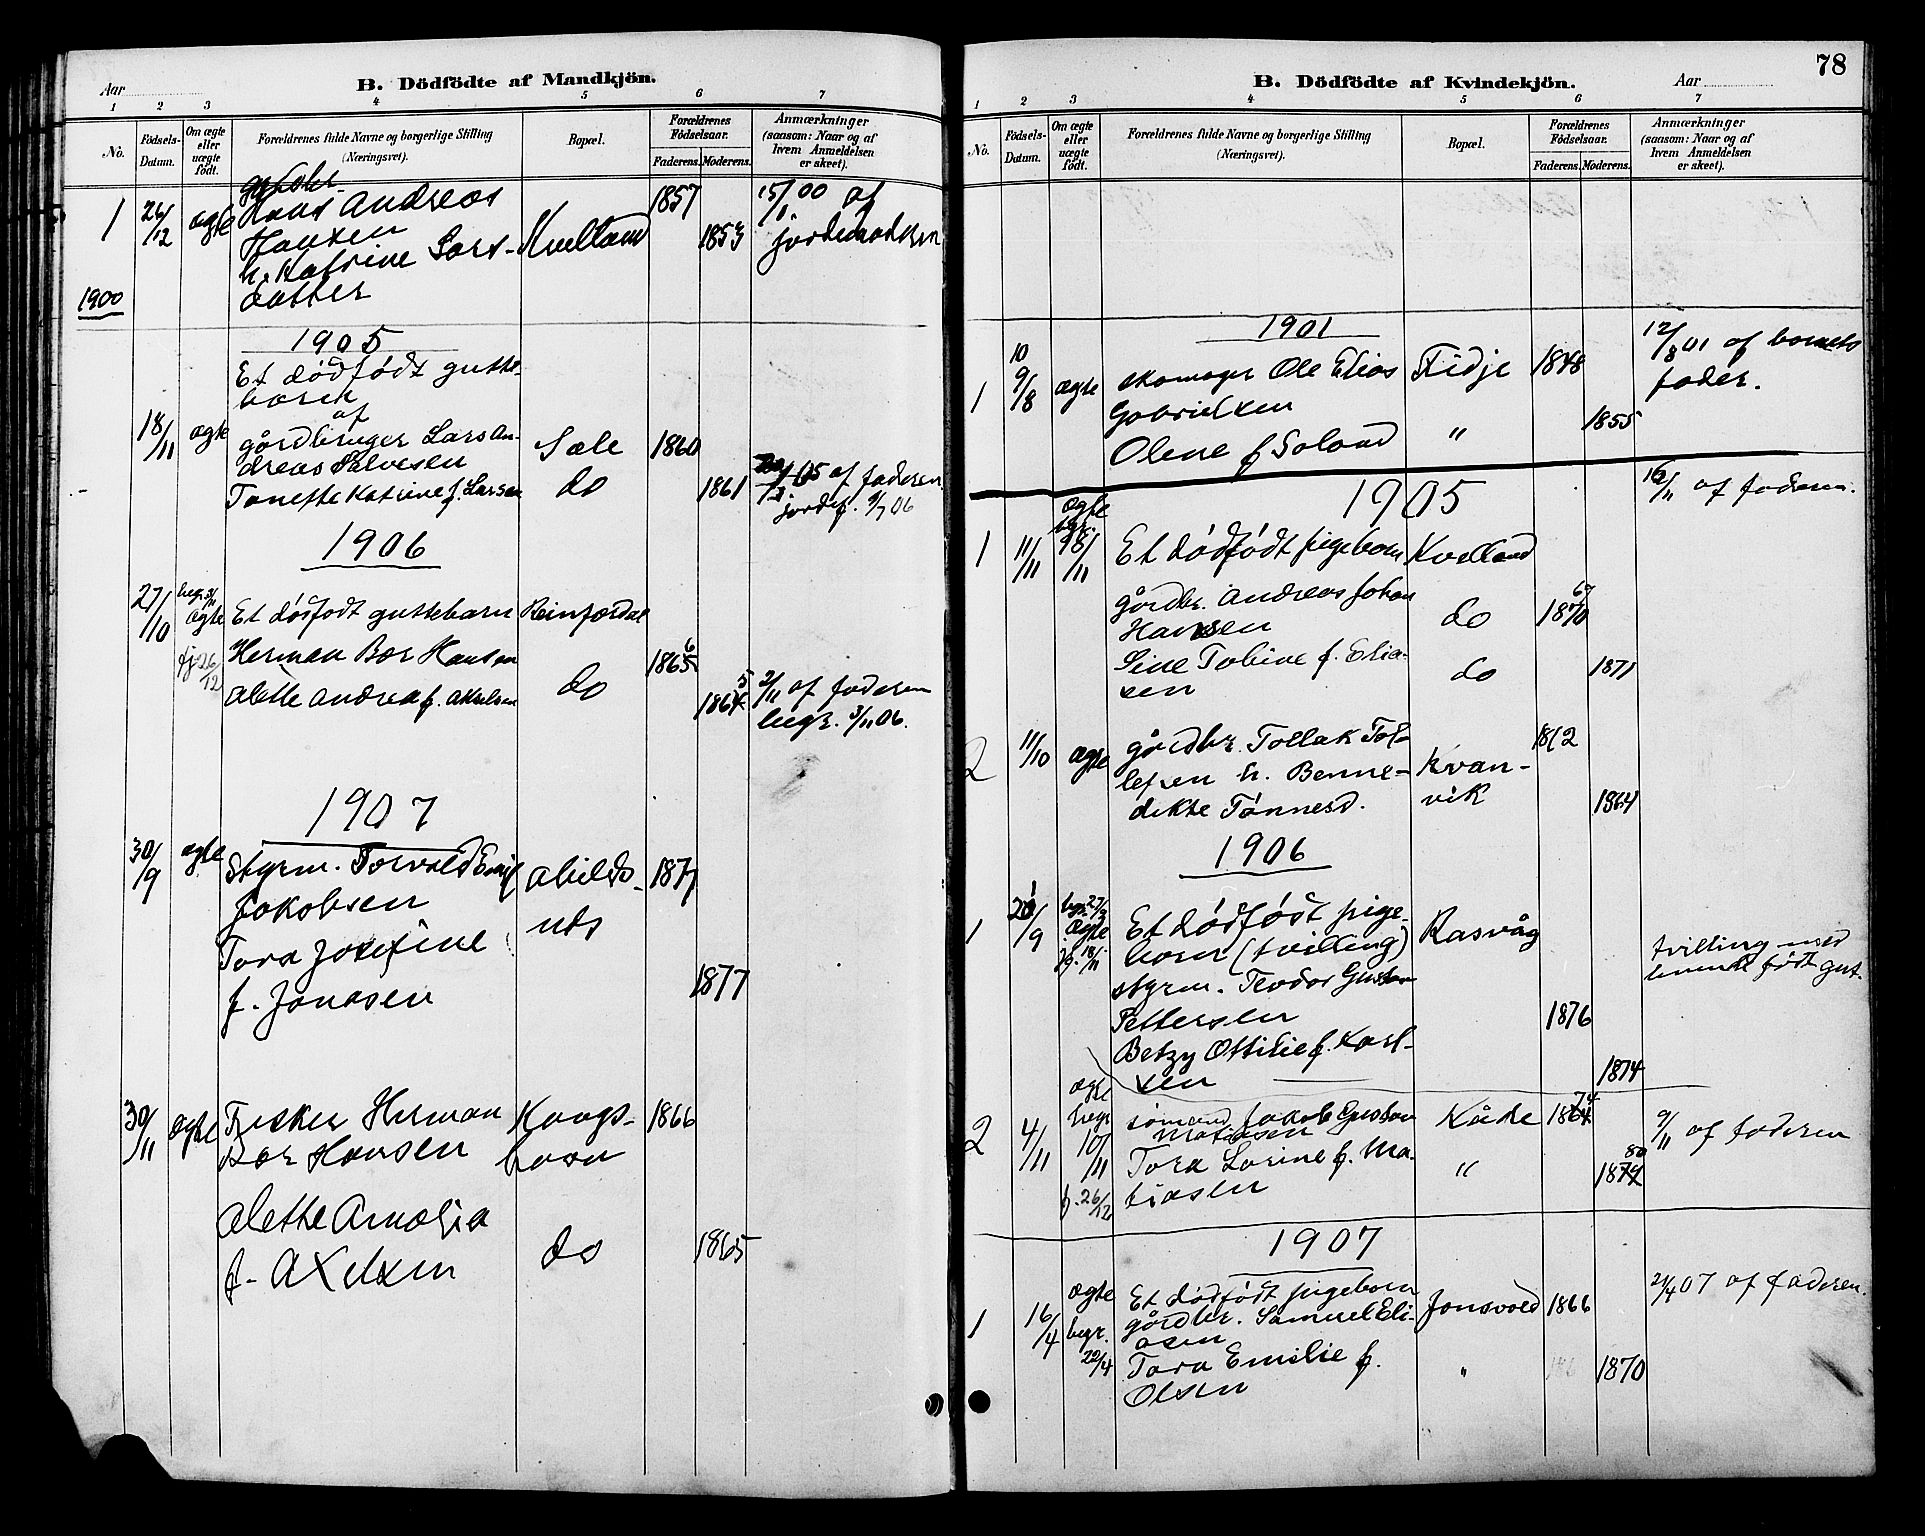 Aar
B. Dödfödte af Mandkjön.
1 2 3 4 5 6 7
No.
Födsels-Datum.
Om ægte eller uægte födt.
Forældrenes fulde Navne og borgerlige Stilling (Næringsvei).
Bopæl.
Forældrenes Födselsaar.
Faderens.
Moderens.
Anmærkninger (saasom: Naar og af hvem Anmeldelsen er skeet).
1 26/12 ægte
Hans Andreas
Hansen
h. Katrine Lars-
datter
Kvelland
1857
1853
15/1 00 af
jordemoderen
1900
1905
Et dödfödt gutte-
barn
af
18/11 ægte
gårdbruger Lars An-
dreas Salvesen
Tonette Katrine f. Larsen
Sæle
do
1860
1861
05 af faderen
jordf. 9/7 06
1906
27/10 begr. 3/11 ægte
Et dödfodt guttebarn
Reinfjordal
jf 26/12
Herman Bor Hansen
Alette Andrea f. Akselsen
do
1865 6
1864 5
2/11 af faderen
begr. 3/11 06.
1907
30/9 ægte
Styrm. Torvald Emil
Jakobsen
Tora Josefine
f. Jonasen
Abelds-
nds
1877
1877
30/11 ægte
Fisker Herman
Bor Hansen
Alette Amalia
f. Axelsen
Kongs-
havn
do
1866
1865
78
B. Dödfödte af Kvindekjön.
Aar
1 2 3 4 5 6 7
No.
Födsels-Datum.
Om ægte eller uægte födt.
Forældrenes fulde Navne og borgerlige Stilling (Næringsvei).
Bopæl.
Forældrenes Födselsaar.
Faderens.
Moderens.
Anmærkninger (saasom: Naar og af hvem Anmeldelsen er skeet).
1901
10
1 9/8 ægte
skomager Ole Elias
Gabrielsen
Olene f Soland
Fidje
"
1848
1855
12/8 01 af barnets
fader.
1905
16/11 af faderen.
1 11/11 ægte begr. 18/11
Et dödfödt pigebarn
gårdbr. Andreas Johan
Hansen
Sine Tobine f. Elia-
sen
Kvelland
do
do
1870 67
1871
2 11/10 ægte
gårdbr. Tollak Tol-
lefsen h. Benne-
dikte Tönnesd.
Kvan-
vik
1862
1864
1906
1 20/9 begr. 27/9 ægte jf. 18/11
Et dödfödt pige-
barn (tvilling)
styrm. Teodor Gustav
Pettersen
Betzy Ottilie f. Karl-
sen
Rasvåg
1876
1874
tvilling med
levende födt gut.
2 4/11 ægte begr 10/11 f. 26/12
sömand Jakob Gustav
Matiasen
Tora Lorine f. Ma-
tiasen
Kåde
"
1864 74
1874 80
9/11 af faderen
1907
1 16/4 ægte begr. 22/4
Et dödfödt pigebarn
gårdbr. Samuel Eli-
asen
Tora Emilie f.
Olsen
Jonsvold
"
1866
1870
21/4 07 af faderen.